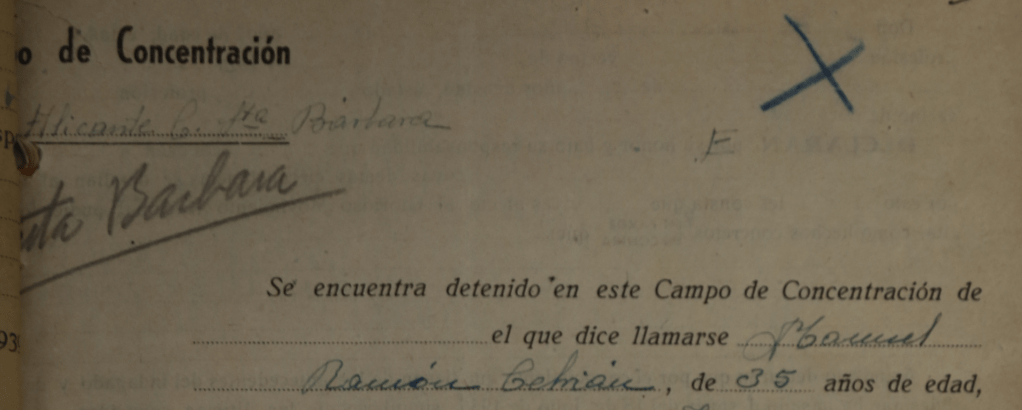 o de Concentración
Alicante C. Sta Bárbara
E
ta Barbara
Se encuentra detenido en este Campo de Concentración de
el que dice llamarse Manuel
Ramón Cebrián, de 35 años de edad,